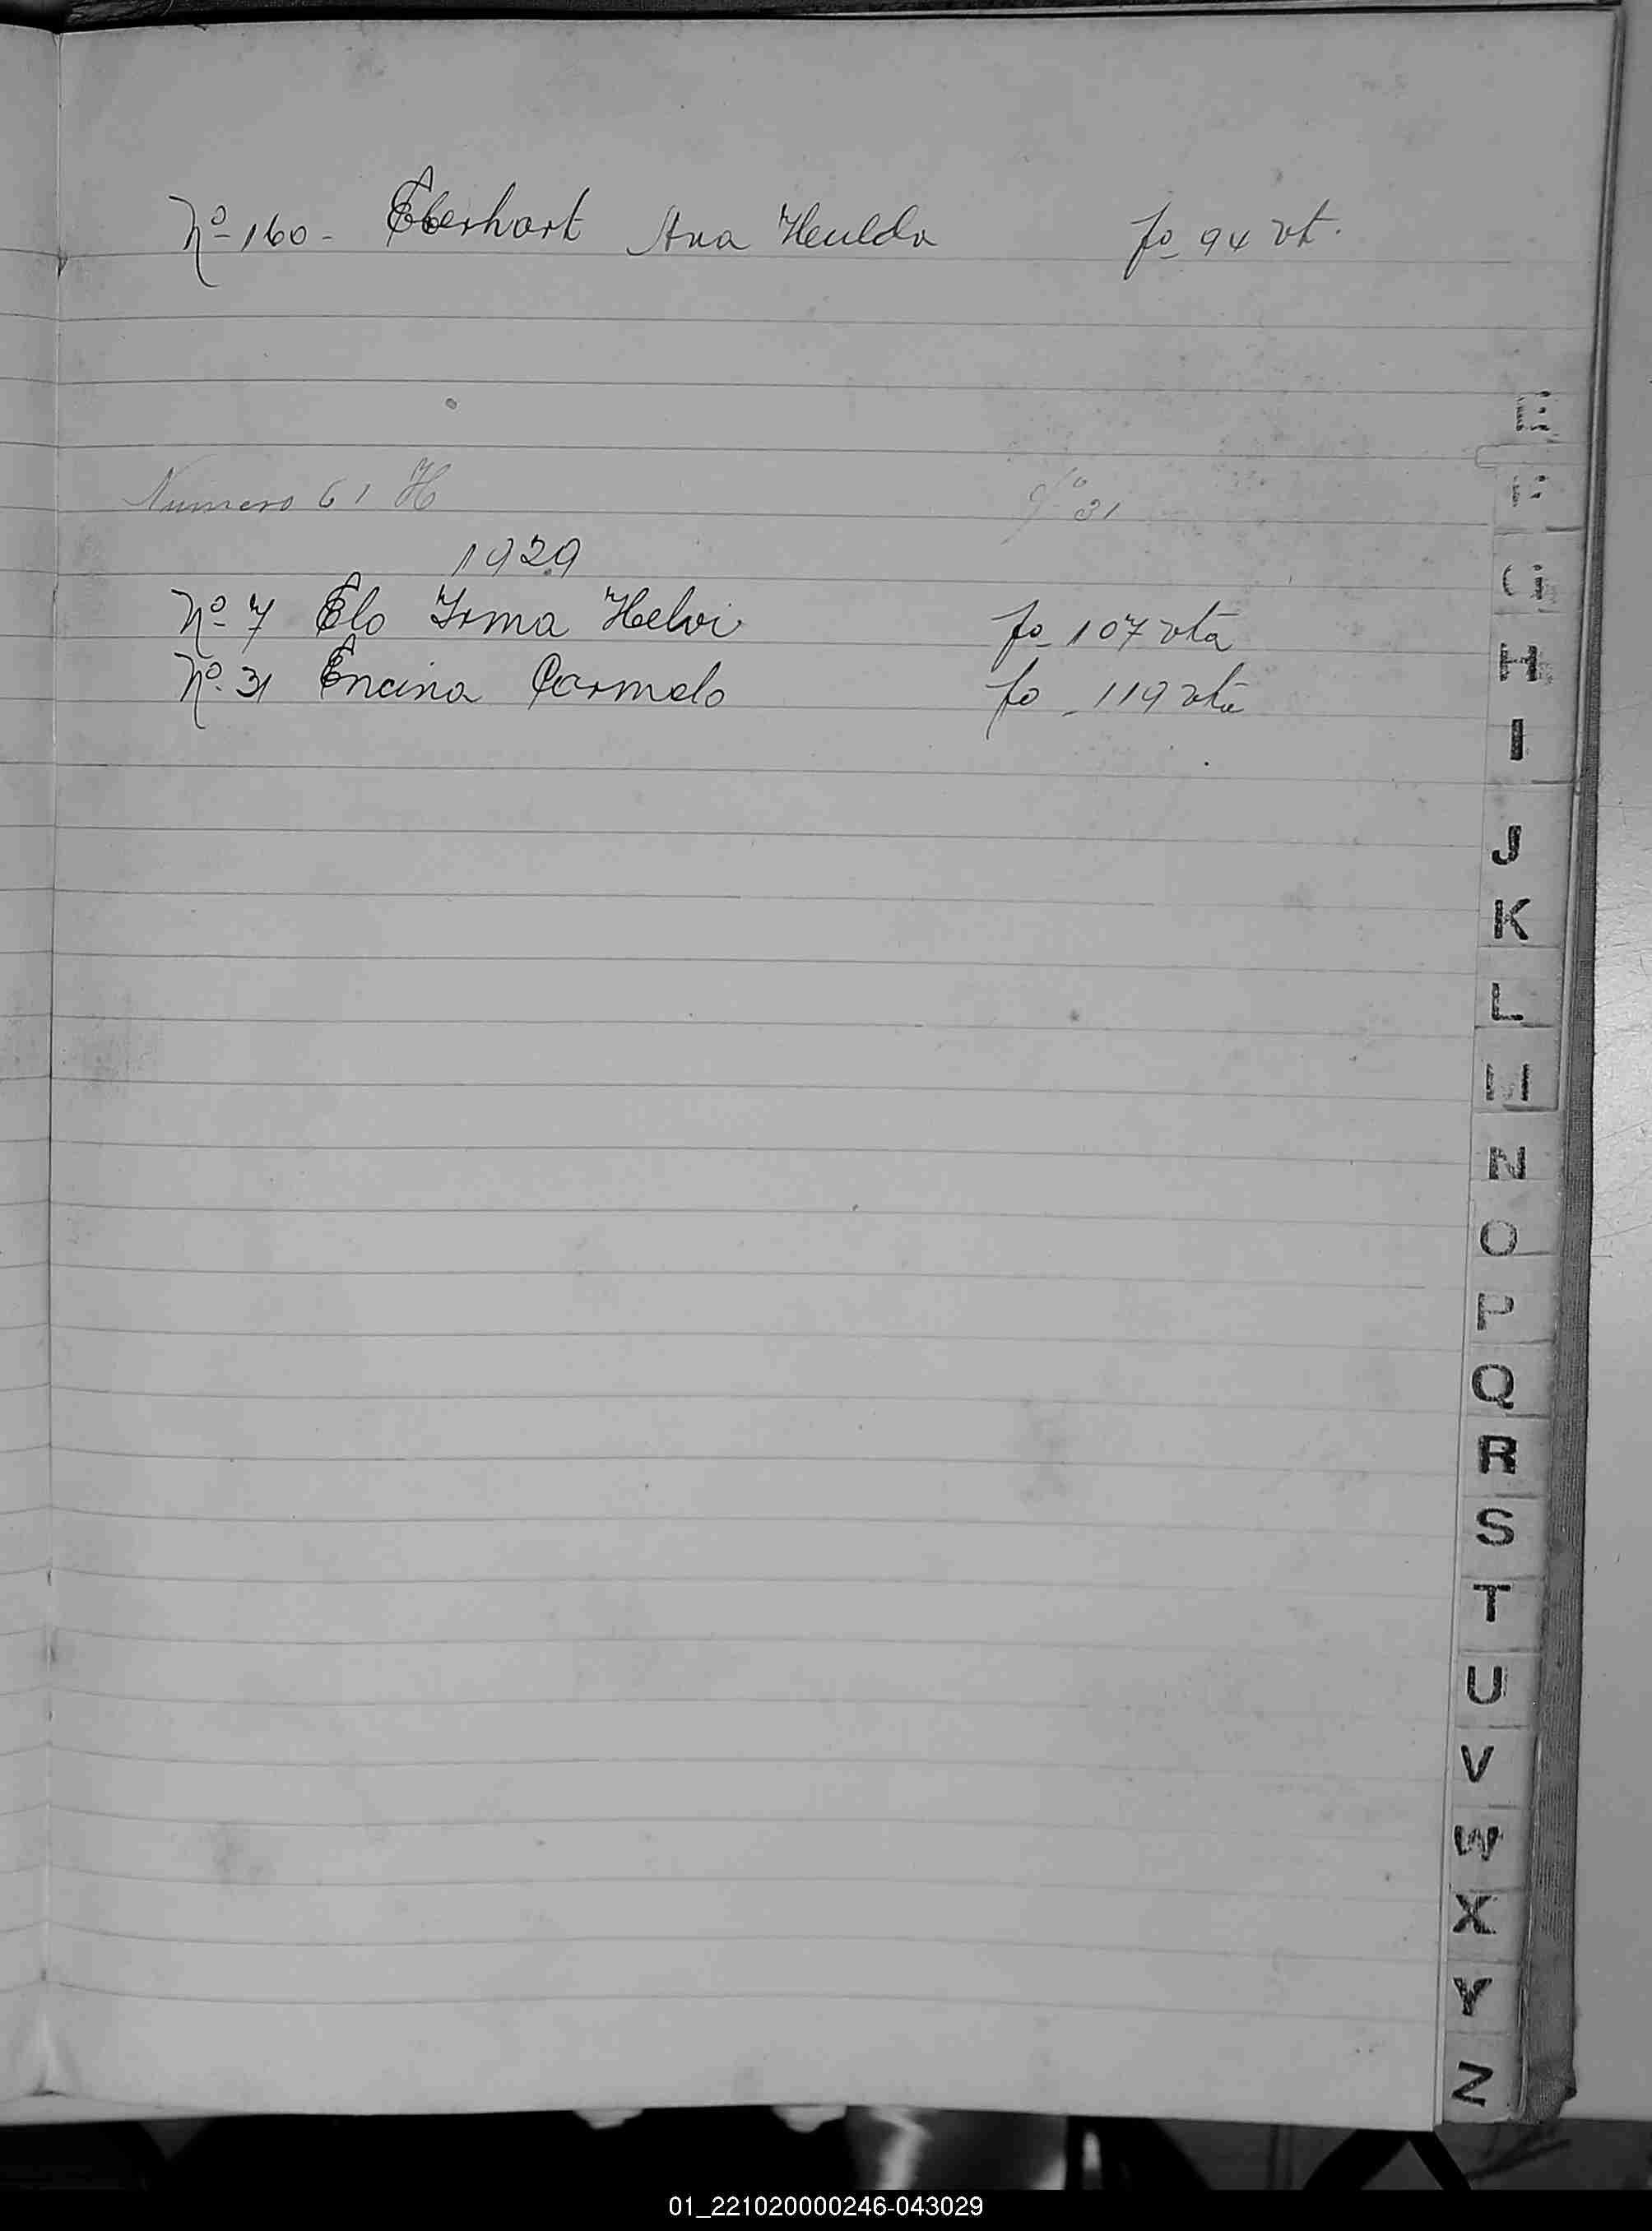 Nº 160 - Eberhart Ana Heulda fo 94 vt.
Numero 61 H fº 31
1929
Nº 7 Elo Irma Helvi fo 107 vta
Nº 31 Encina Carmelo fo 119 vta
E
F
G
H
I
J
K
L
M
N
O
P
Q
R
S
T
U
V
W
X
Y
Z
01_221020000246-043029